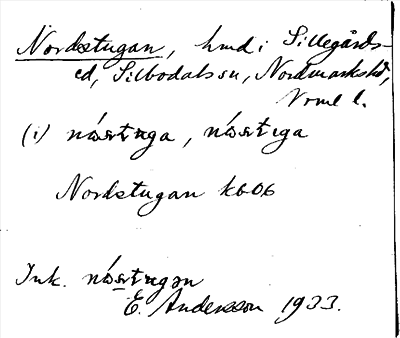 Nordstugan, hmd i Sillegårds-
ed, Silbodals sn, Nordmarks hd,
Vrml l.
(i) nósṯuga, nósṯiga
Nordstugan kb 06
Ink. nósṯugən
E. Andersson 1933.